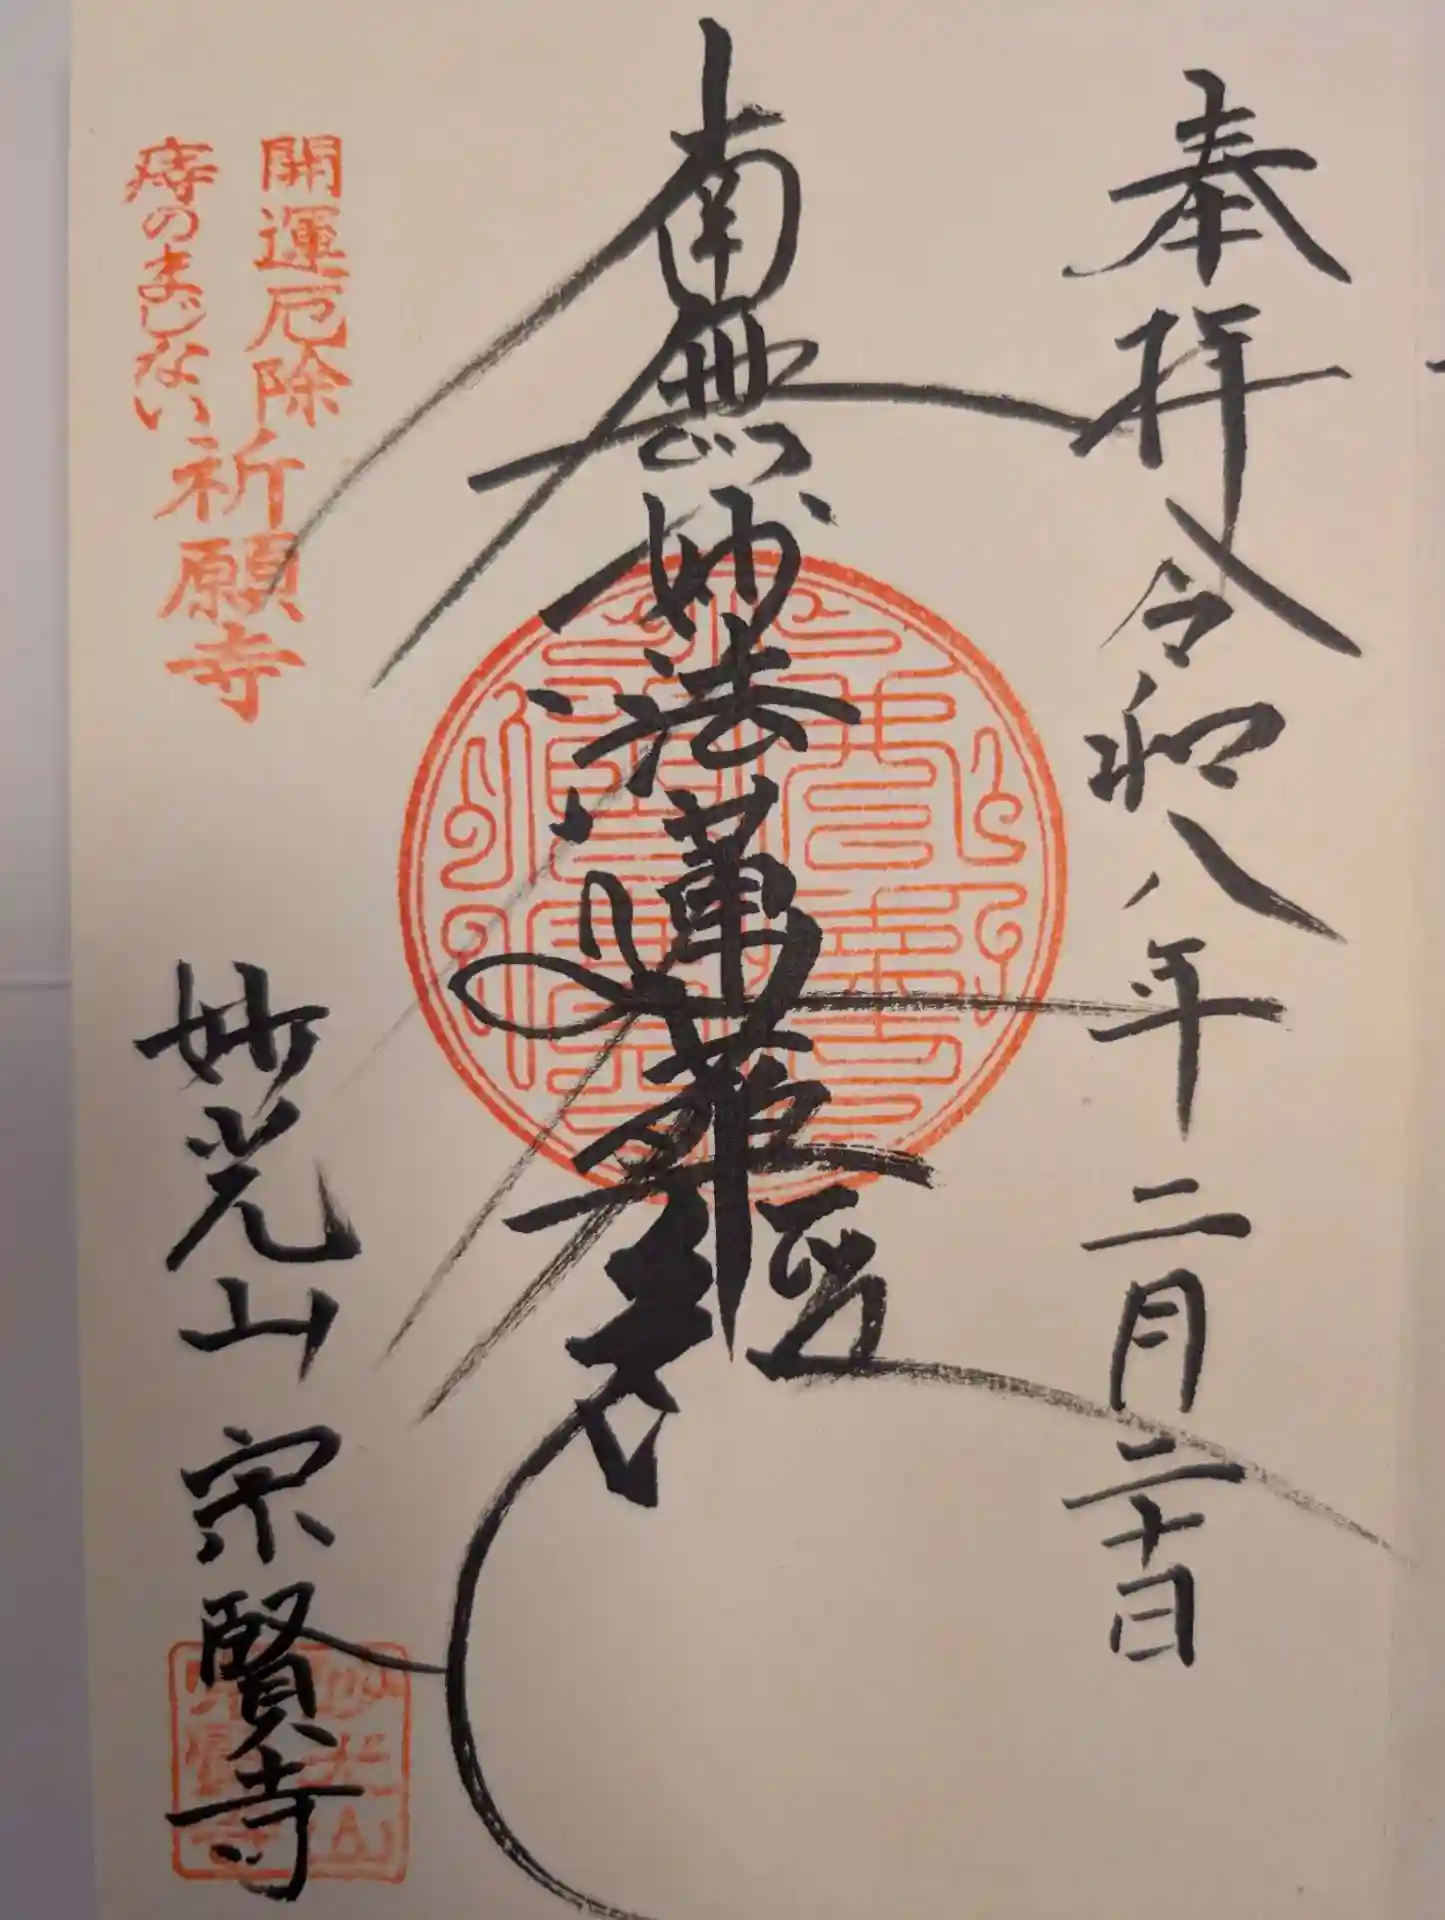 奉拝 令和八年二月二十日
南無妙法蓮華経
開運厄除
痔のまじない
祈願寺
妙光山 宗賢寺
妙光山
宗賢寺